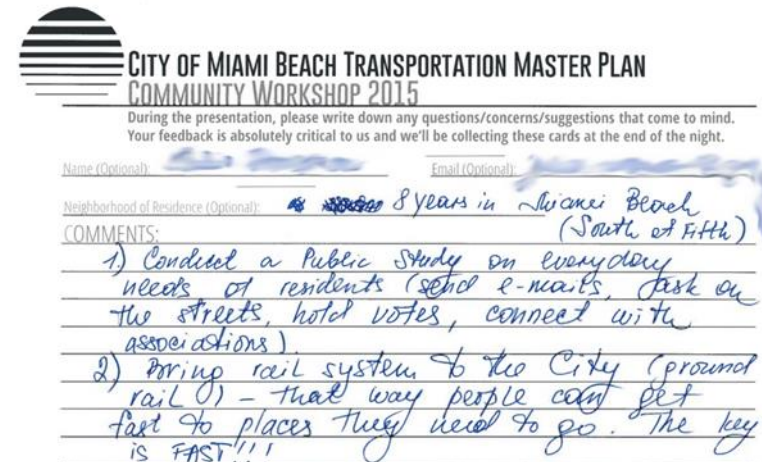 CITY OF MIAMI BEACH TRANSPORTATION MASTER PLAN
COMMUNITY WORKSHOP 2015
During the presentation, please write down any questions/concerns/suggestions that come to mind.
Your feedback is absolutely critical to us and we'll be collecting these cards at the end of the night.
Name (Optional): Email (Optional):
Neighborhood of Residence (Optional): 8 years in Miami Beach
(South of Fifth)
COMMENTS:
1) Conduct a Public Study on everyday
needs of residents (send e-mails, ask on
the streets, hold votes, connect with
associations)
2) Bring rail system to the City (ground
rail!) - that way people can get
fast to places they need to go. The key
is FAST!!!